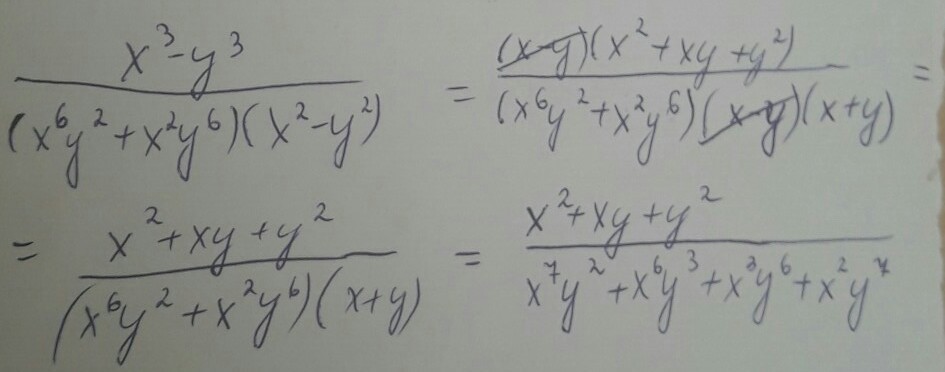 \frac{x^3-y^3}{(x^6y^2+x^2y^6)(x^2-y^2)} = \frac{\cancel{(x-y)}(x^2+xy+y^2)}{(x^6y^2+x^2y^6)\cancel{(x-y)}(x+y)} =
= \frac{x^2+xy+y^2}{(x^6y^2+x^2y^6)(x+y)} = \frac{x^2+xy+y^2}{x^7y^2+x^6y^3+x^3y^6+x^2y^7}